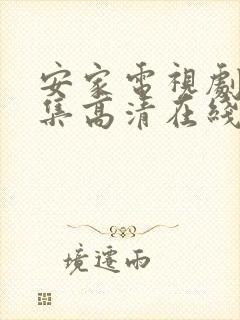 安家電視劇
集高清在綫
境遷雨